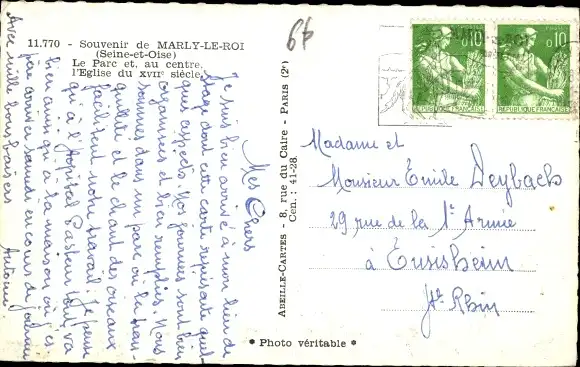 11.770 - Souvenir de MARLY-LE-ROI
(Seine-et-Oise)
Le Parc et, au centre,
l'Eglise du XVIIe siècle.
6f
Mes Chers
Je suis bien arrivé à mon lieu de
stage dont cette carte représente quel-
ques aspects. Nos journées sont bien
organisées et bien remplies. Nous
sommes dans un parc où la tran-
quillité et le chant des oiseaux
facilitent notre travail. Je pense
qu'à l'Hôpital Pasteur tout va
bien ainsi qu'à la maison où j'es
père arriver samedi en cours de journée
Avec mille bons baisers
Antoine
ABEILLE-CARTES - 8, rue du Caire - PARIS (2e)
Cen. : 41-28.
* Photo véritable *
0,10
REPUBLIQUE FRANÇAISE
0,10
REPUBLIQUE FRANÇAISE
Madame et
Monsieur Emile Deybach
29 rue de la 1e Armée
à Ensisheim
Ht Rhin